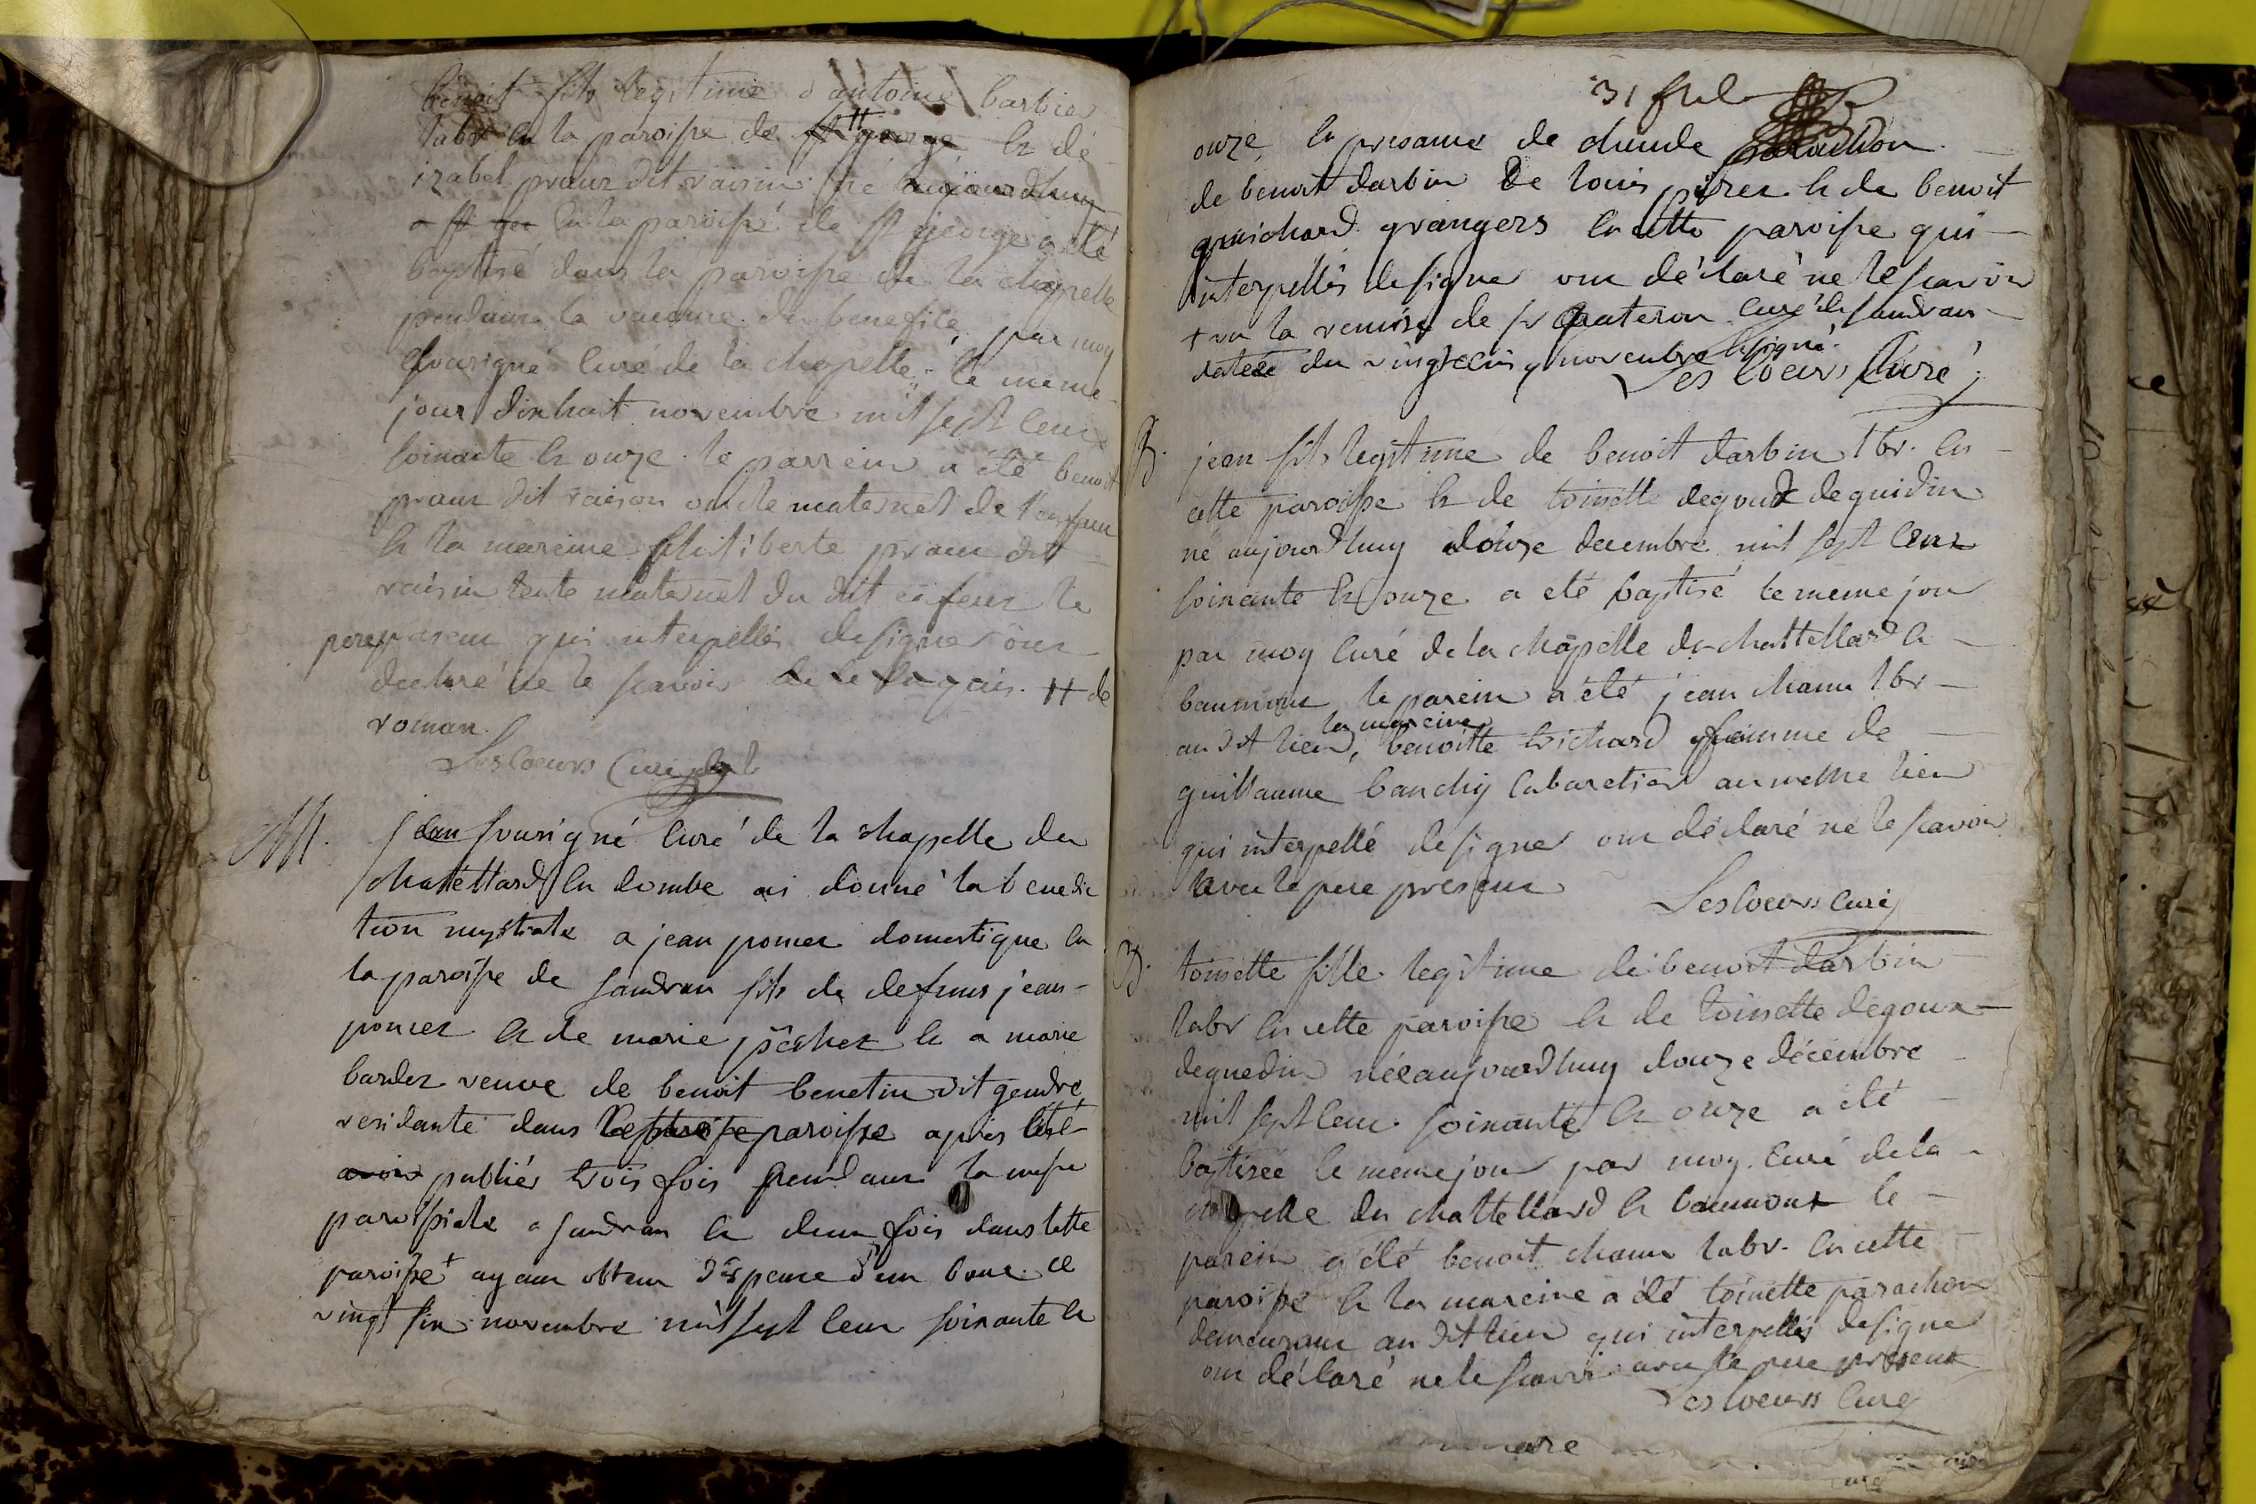 benoit fils legitime d antoine barbier
labr en la paroisse de st george & de
izabel praux dit raisin né aujourdhuy
a st ger en la paroisse de st george a été
baptisé dans la paroisse de la chapelle
pendant la vacance du benefice, par moy
sousigné curé de la chapelle le meme
jour dixhuit novembre mil sept cent
soixante & onze le parrein a été benoit
praux dit raison oncle maternel de l'enfant
& la mareine philiberte praux dit
raisin tente maternel du dit enfent le
pere present qui interpellés de signer ont
declaré ne le scavoir ++ de
roman.
Lescoeurs Curé
M. sousigné curé de la chapelle du
chatellard en dombe ai donné la benedic
tion nuptiale a jean poncet domestique en
la paroisse de sandran fils de defunt jean
poncet & de marie pêchet & a marie
bardet veuve de benoit benetin dit gendre
residante dans paroisse après été
avoir publiés trois fois pendant la messe
paroissiale a sandran & deux fois dans cette
paroisse + ayant obtenu dispence d'un banc ce
vingt six novembre mil sept cent soixante &
31 ful
onze, en presance de claude parachon
de benoit darbin de louis pirez & de benoit
guichard grangers en cette paroisse qui
interpellés de signer ont déclaré ne le scavoir
+ vu la remise de sr quateron curé de sandran
datée du vingtcinq novembre & signé.
Lescoeurs Curé
B. jean fils legitime de benoit darbin lbr. en
cette paroisse & de toinette degoux deguidin
né aujourdhuy douze decembre mil sept cent
soixante & onze a eté baptisé le meme jour
par moy curé de la chapelle du chattellard &
baumont le parein a été jean chanu lbr
au dit lieu, la mareine benoitte brichard femme de
guillaume banchy cabaretier au meme lieu
qui interpellé de signer ont déclaré ne le scavoir
avec le pere present
Lescoeurs curé
B. toinette fille legitime de benoit darbin
labr en cette paroisse & de toinette degoux
deguedin née aujourdhuy douze décembre
mil sept cent soixante & onze a été
baptisée le meme jour par moy curé de la
chapelle du chattellard & baumont le
parein a été benoit chanu labr. en cette
paroisse & la mareine a été toinette parachon
demeurant au dit lieu qui interpellés de signer
ont déclaré ne le scavoir avec le pere present
Lescoeurs Curé
curé